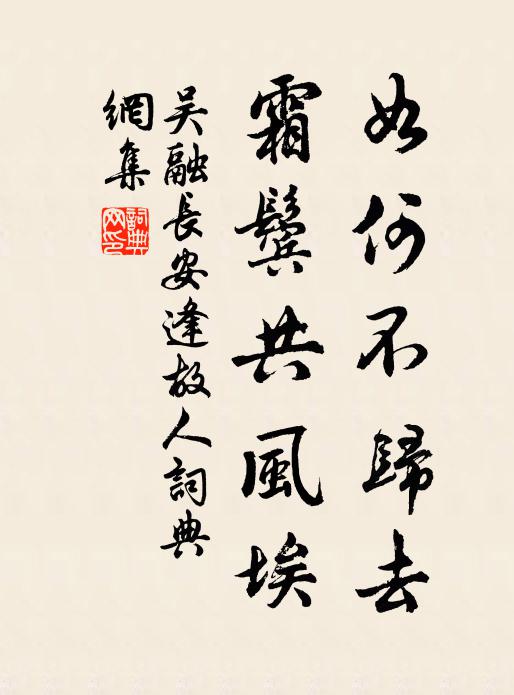 如何不歸去
霜鬢共風埃
吳融長安逢故人詞典
網集
詞典
网印